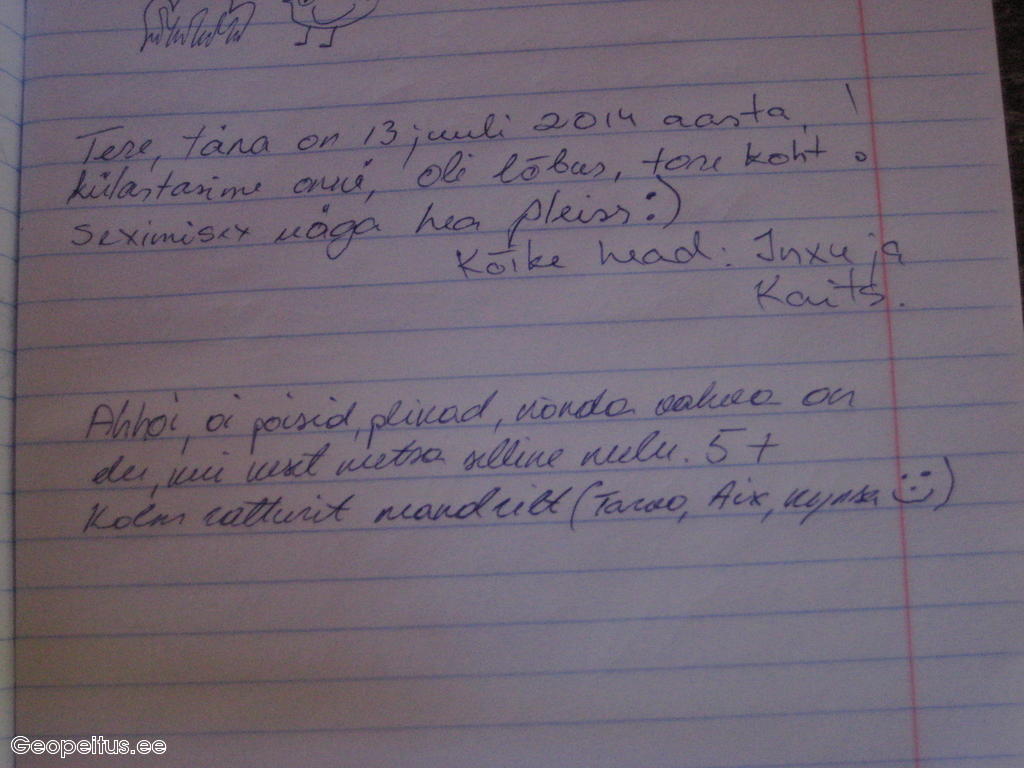 Tere, täna on 13 juuli 2014 aasta, !
külastasime onni, oli lõbus, tore koht .
seximisex väga hea pleiss:)
Kõike head: Inxu ja
Kaits.
Ahhoi, oi poisid, plikad, nõnda vahva on
elu, kui keset metsa selline nulu. 5+
Kolm ratturit mandrilt (Tarvo, Aix,
Geopeitus.ee